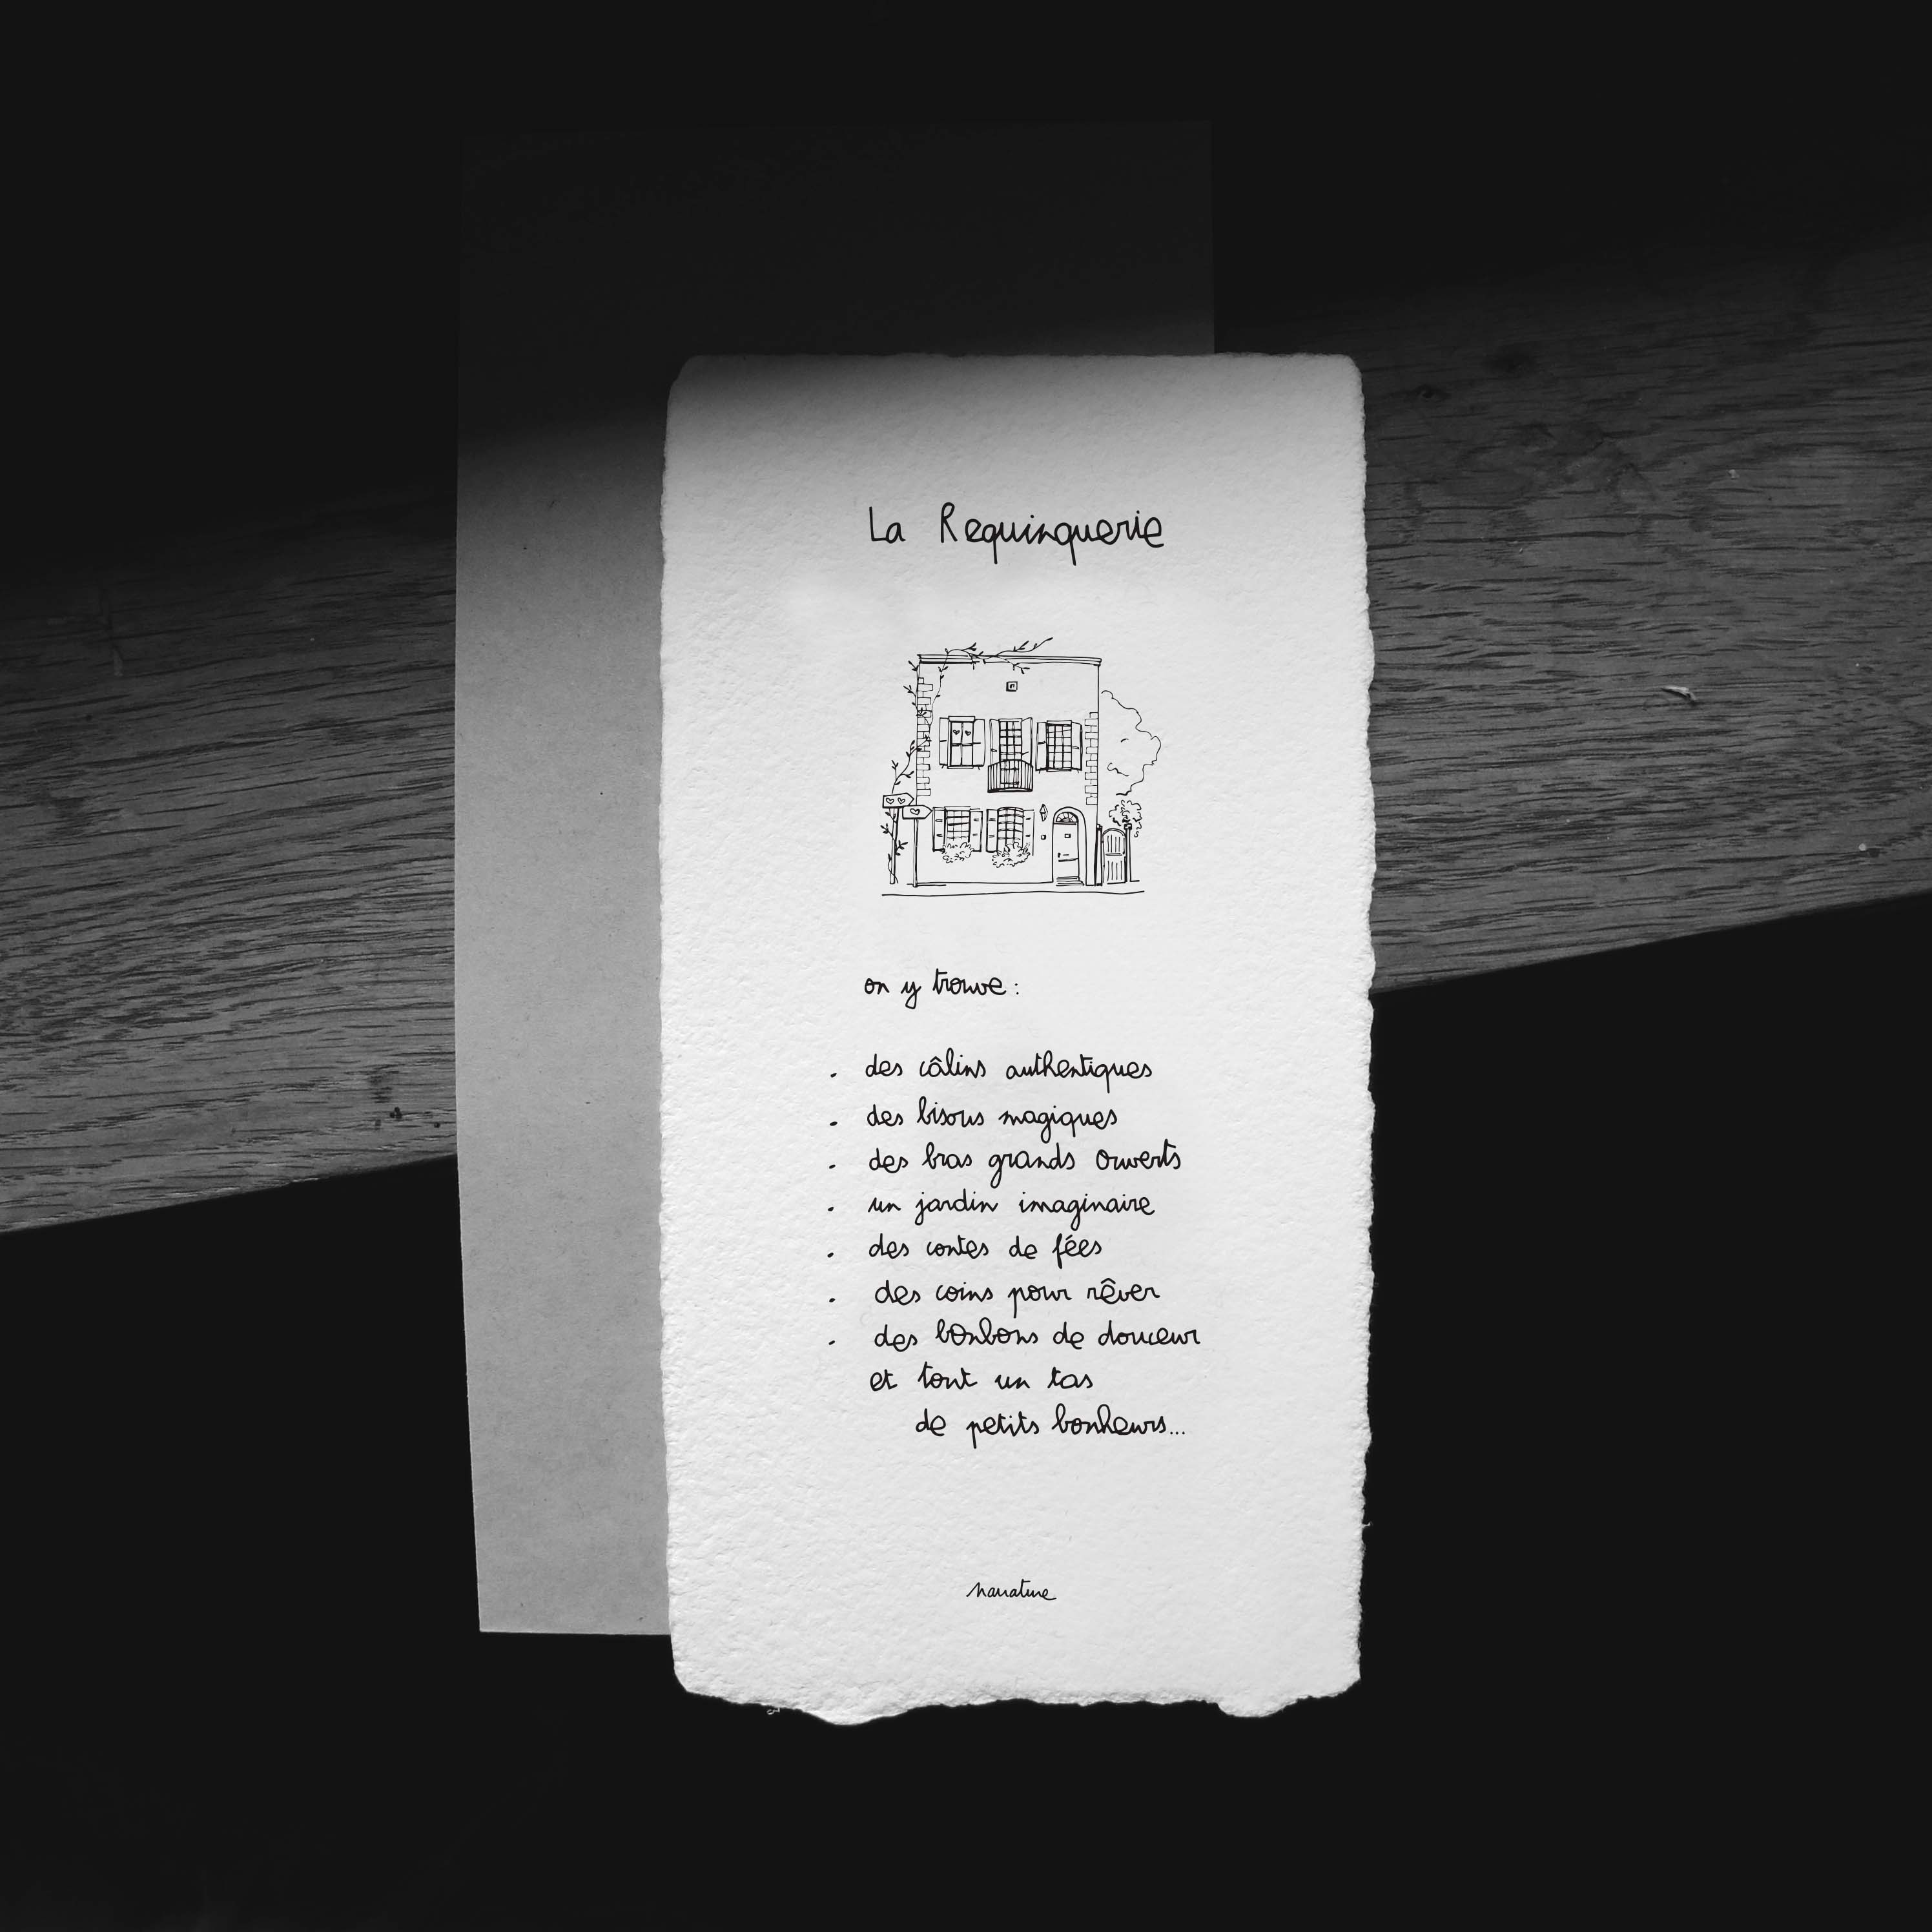 La Requinquerie
on y trouve :
. des câlins authentiques
. des bisous magiques
. des bras grands ouverts
. un jardin imaginaire
. des contes de fées
. des coins pour rêver
. des bonbons de douceur
et tout un tas
de petits bonheurs...
narrature